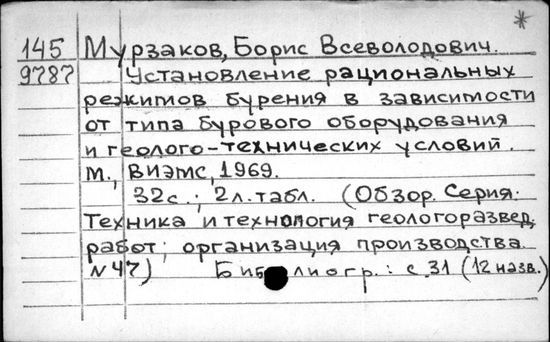 *
145 Мурзаков, Борис Всеволодович.
9787 Установление рациональных
режимов бурения в зависимости
от типа бурового оборудования
и геолого-технических условий.
М., ВИЭМС, 1969.
32с.; 2л.табл. (Обзор. Серия:
Техника и технология геологоразвед.
работ; организация производства.
N47) Библиогр.: с.31 (12 назв.)